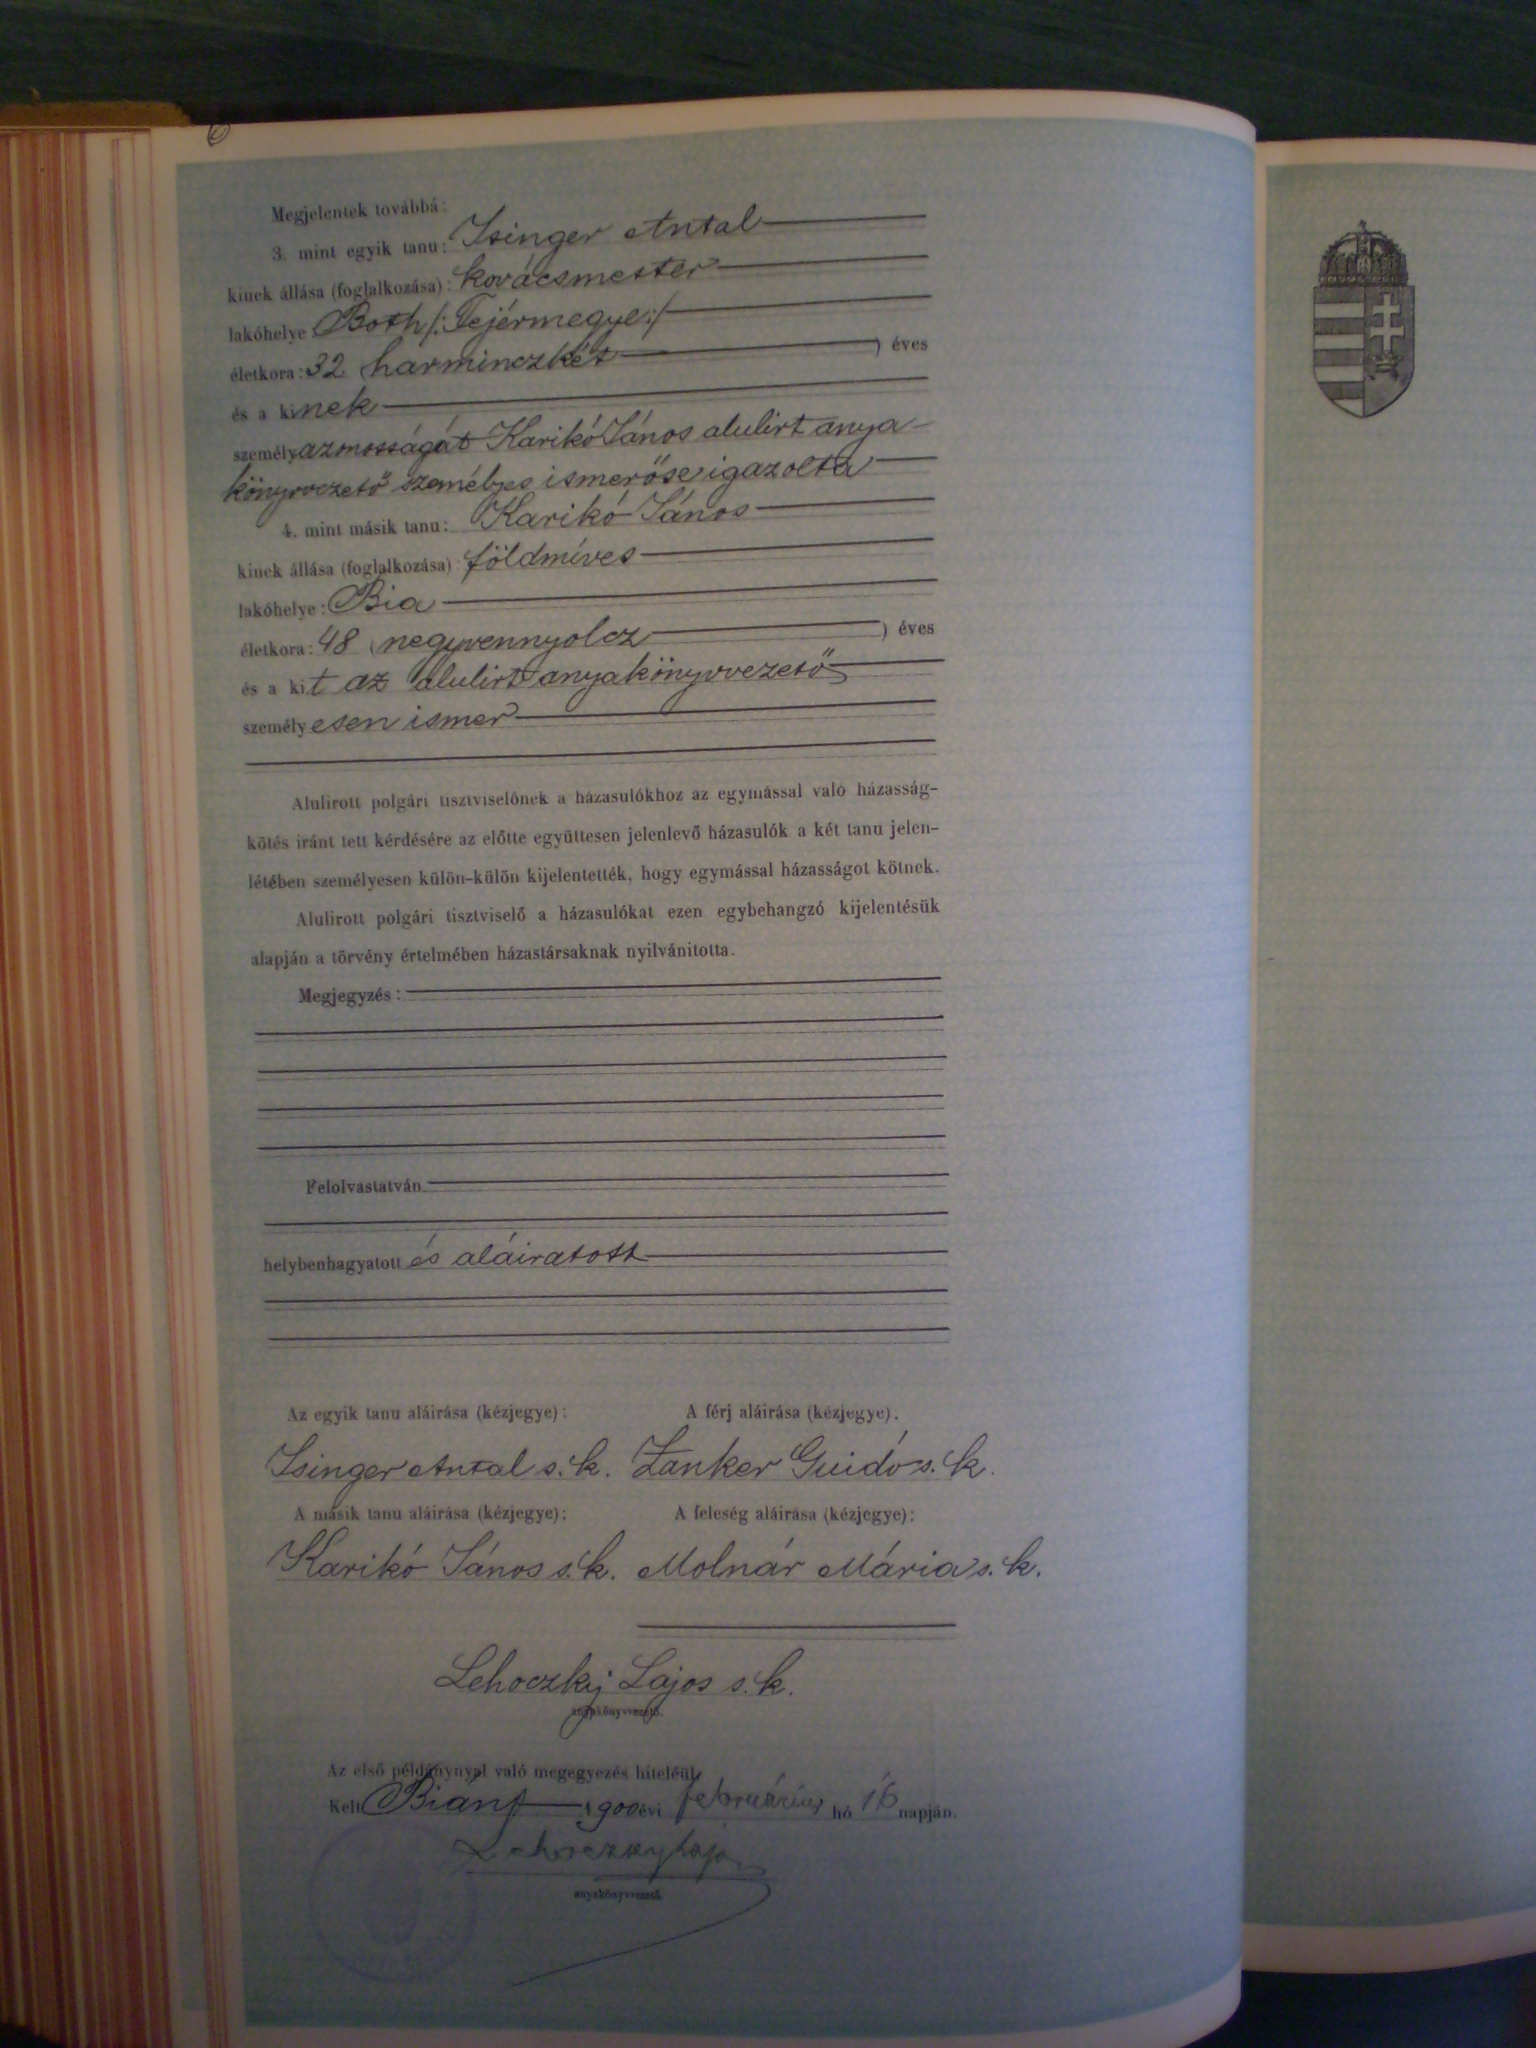 Megjelentek továbbá:
3. mint egyik tanu: Isinger Antal
kinek állása (foglalkozása): kovácsmester
lakóhelye Both /: Fejérmegye :/
életkora: 32 (harminczkét ) éves
és a kinek
személyazonosságát Karikó János alulirt anya-
könyvvezető személyes ismerőse igazolta
4. mint másik tanu: Karikó János
kinek állása (foglalkozása) földmíves
lakóhelye: Bia
életkora: 48 (negyvennyolcz ) éves
és a kit az alulirt anyakönyvvezető
személyesen ismer
Alulirott polgári tisztviselőnek a házasulókhoz az egymással való házasság-
kötés iránt tett kérdésére az előtte együttesen jelenlevő házasulók a két tanu jelen-
létében személyesen külön-külön kijelentették, hogy egymással házasságot kötnek.
Alulirott polgári tisztviselő a házasulókat ezen egybehangzó kijelentésük
alapján a törvény értelmében házastársaknak nyilvánitotta.
Megjegyzés:
Felolvastatván
helybenhagyatott és aláiratott
Az egyik tanu aláirása (kézjegye): A férj aláirása (kézjegye).
Isinger Antal s. k. Zanker Guidó s. k.
A másik tanu aláirása (kézjegye): A feleség aláirása (kézjegye):
Karikó János s. k. Molnár Mária s. k.
Lehoczky Lajos s. k.
anyakönyvvezető.
Az első példánynyal való megegyezés hiteléül
Kelt Bián, 1900 évi február hó 16 napján.
Lehoczky Lajos
anyakönyvvezető